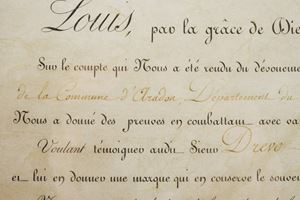 Louis, par la grâce de Die
Sur le compte qui Nous a été rendu du dévouemen
de la Commune d'Aradon, Département du
Nous a donné des preuves en combattant avec va
Voulant témoigner audit Sieur Drevo
et lui en donner une marque qui en conserve le souve